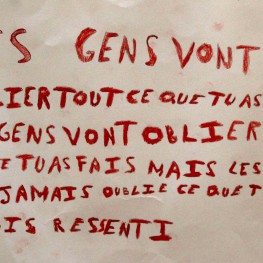 ES GENS VONT
LIER TOUT CE QUE TU AS
GENS VONT OBLIER
E TU AS FAIS MAIS LES
JAMAIS OUBLIE CE QUE T
IS RESSENTI